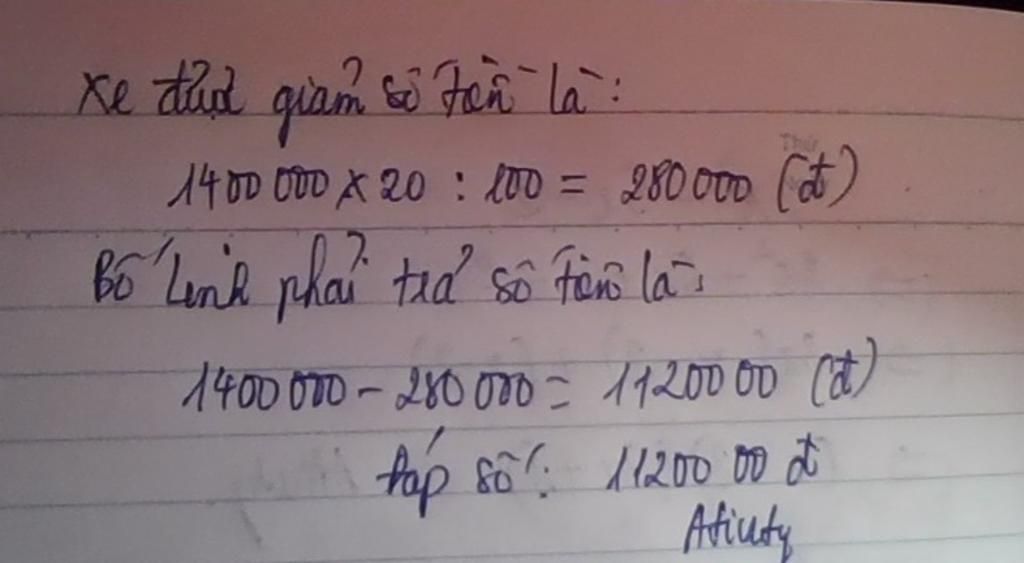 Xe được giảm số tiền là:
1400 000 x 20 : 100 = 280 000 (đ)
Bố Linh phải trả số tiền là:
1400 000 - 280 000 = 11200 00 (đ)
Đáp số: 11200 00 đ